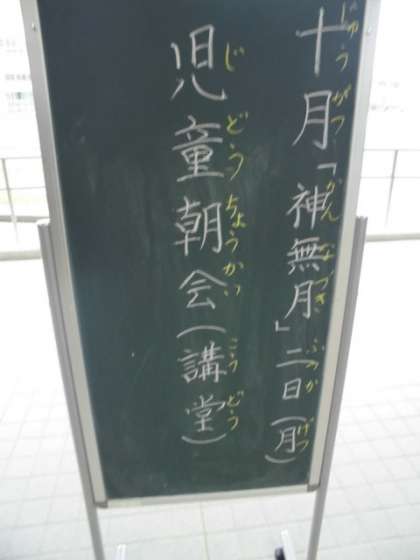 十月「神無月」二日(月)
じゅうがつかんなづきふつかげつ
児童朝会(講堂)
じどうちょうかいこうどう